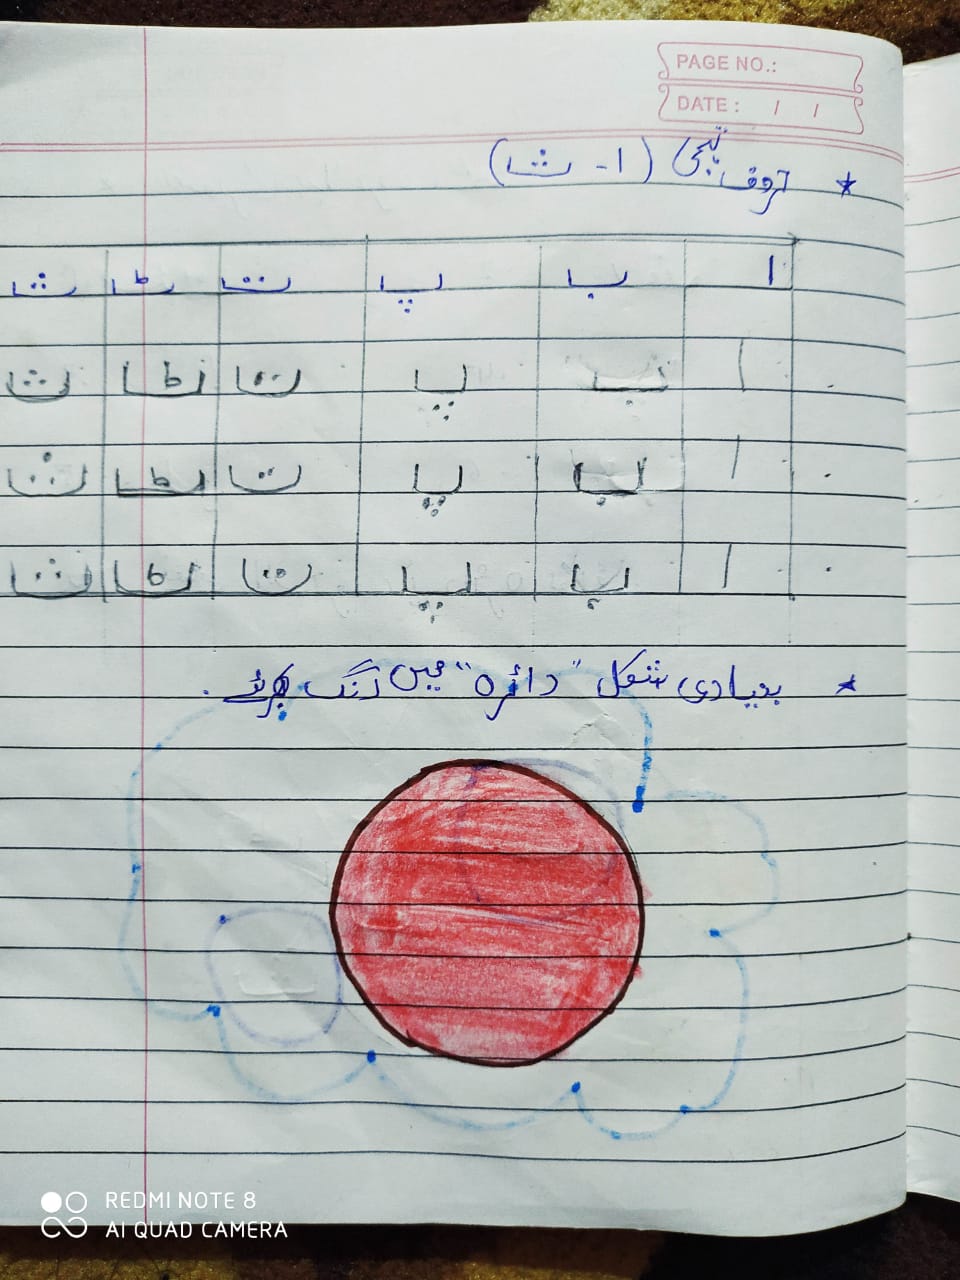 PAGE NO.:
DATE : / /
★ حروف تہجی (ا - ث)
ا ب پ ت ٹ ث
ا ب پ ت ٹ ث
ا ب پ ت ٹ ث
ا ب پ ت ٹ ث
★ بنیادی شکل "دائرہ" میں رنگ کریئے۔
REDMI NOTE 8
AI QUAD CAMERA